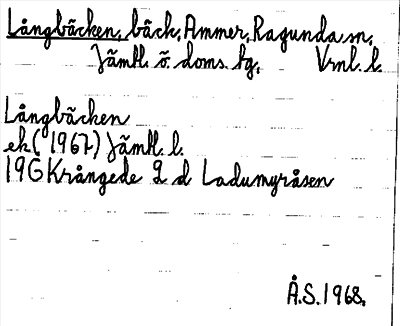 Långbäcken, bäck, Ammer, Ragunda sn,
Jämtl. ö. doms. tg, Vml. l.
Långbäcken
ek (1967) Jämtl. l.
19G Krångede 2 d Ladumyråsen
Å.S. 1968.